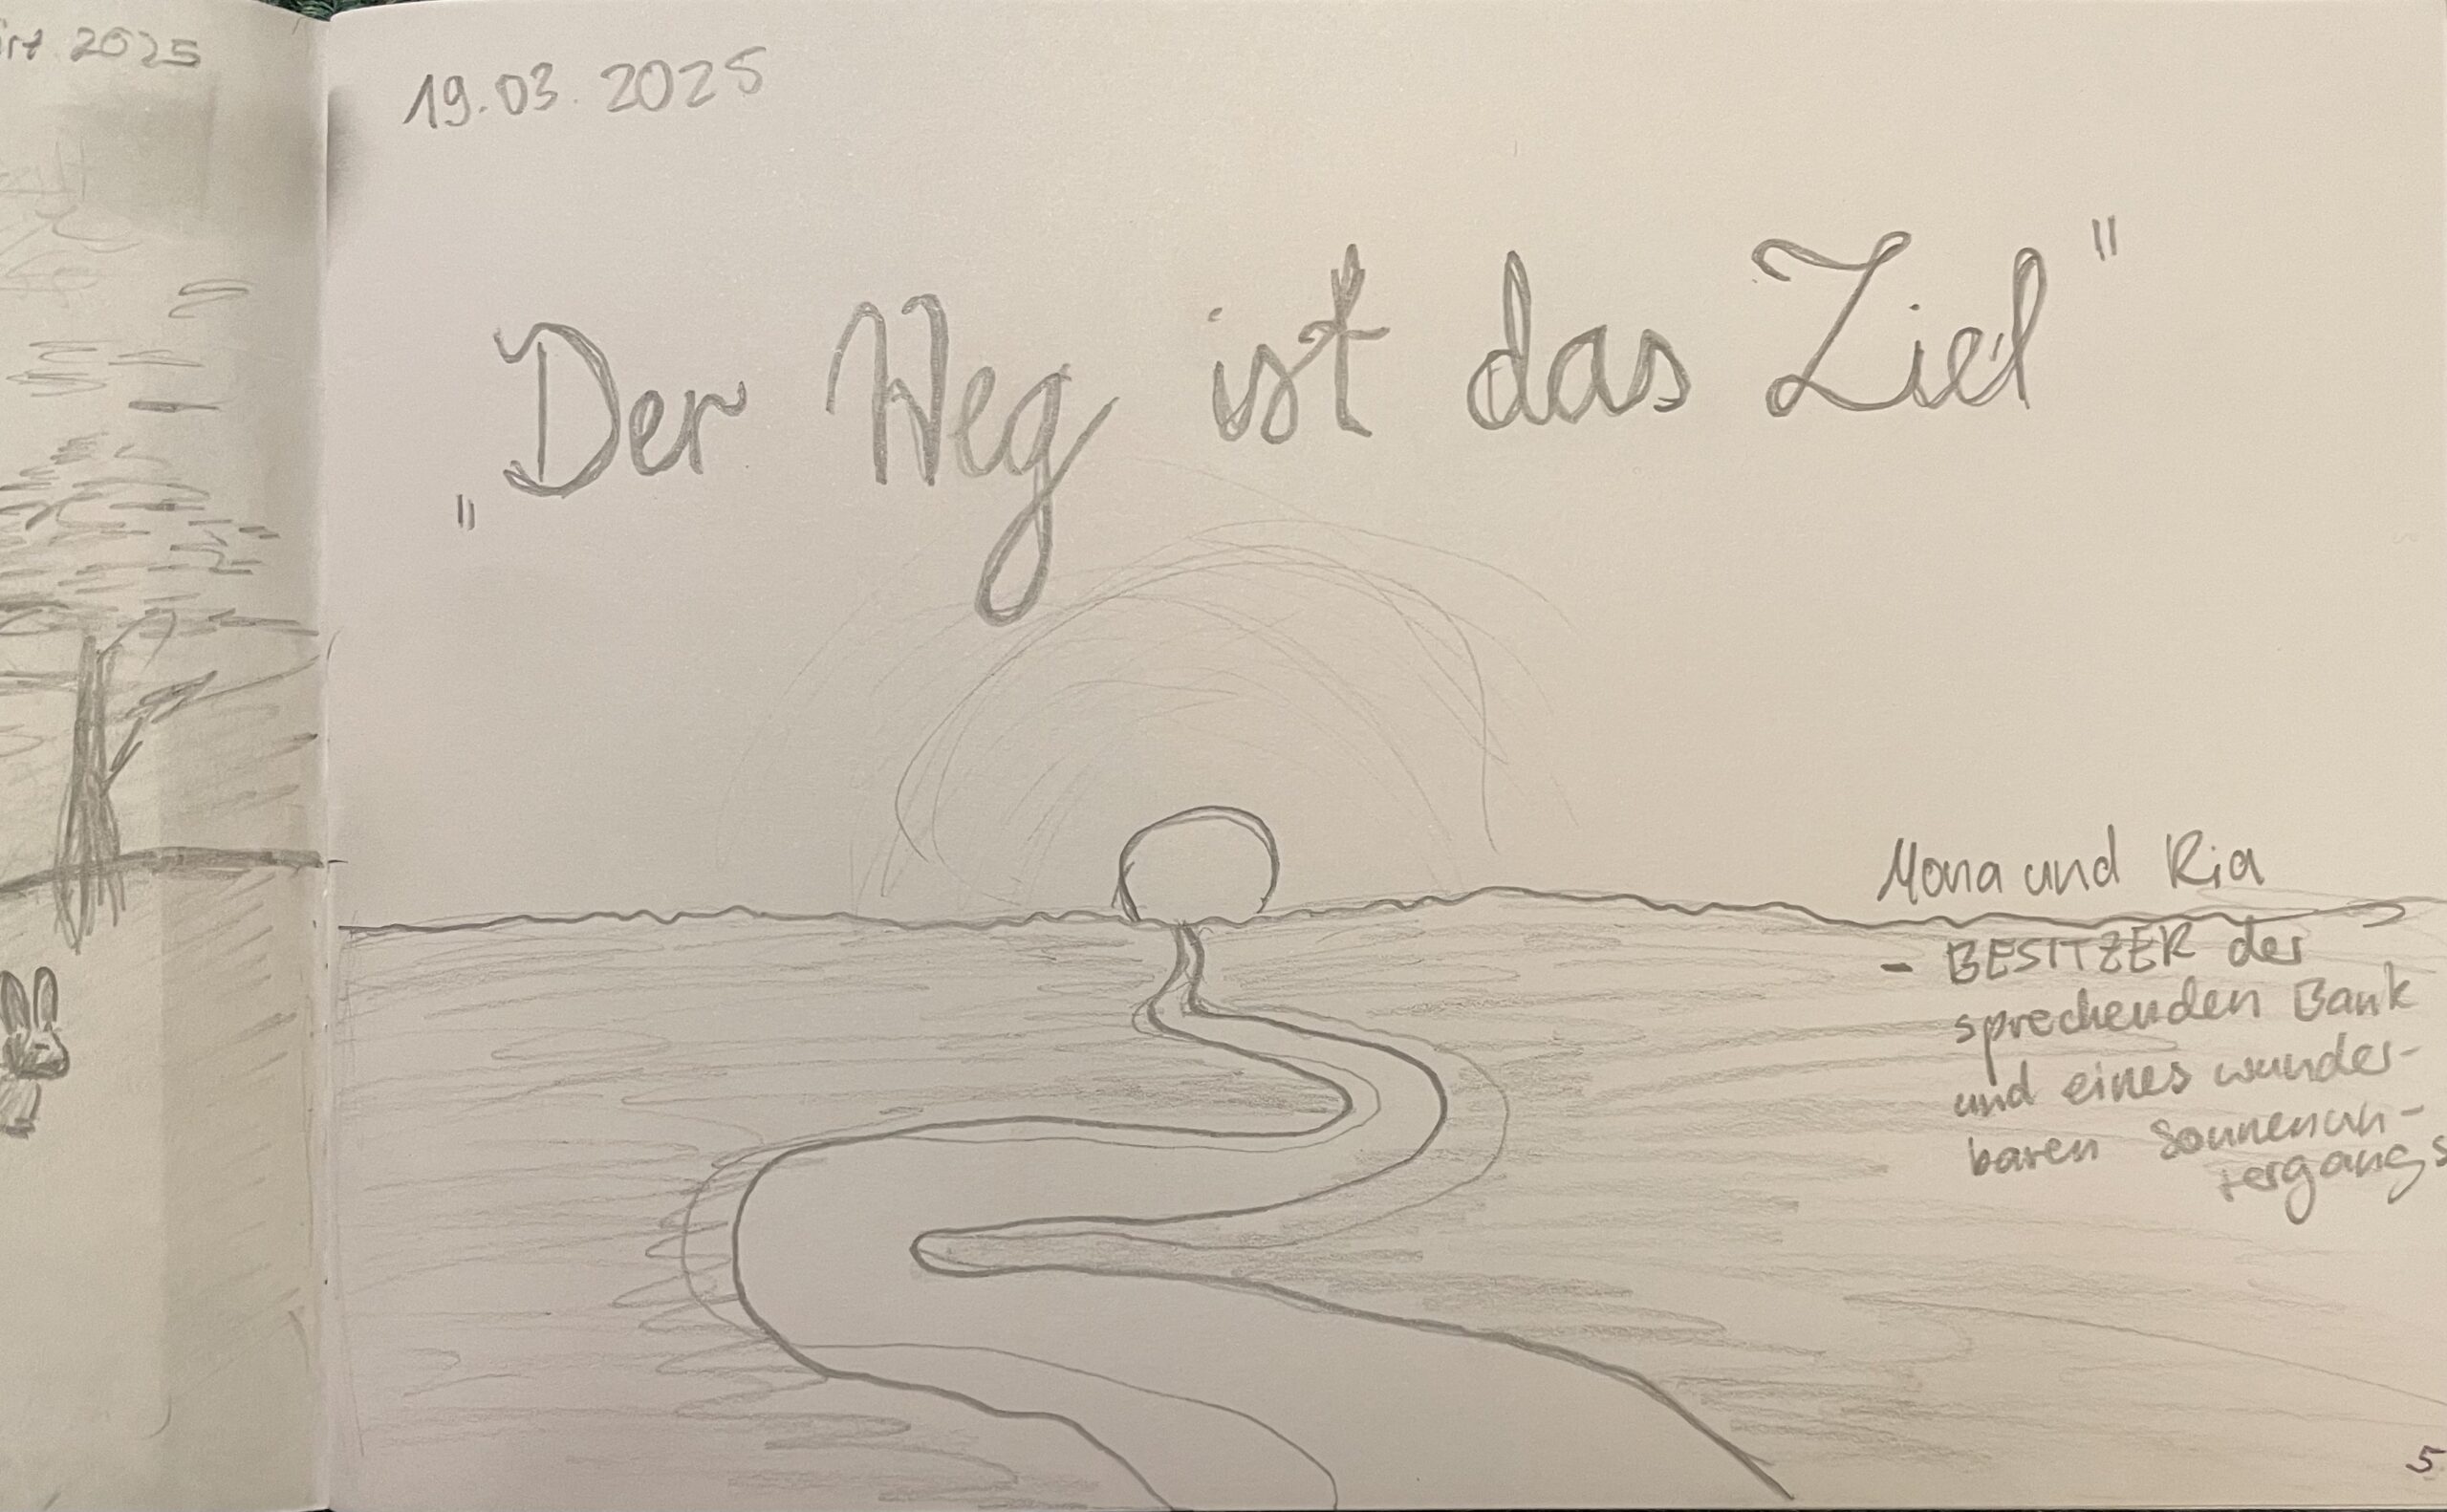 2025
19.03.2025
„Der Weg ist das Ziel"
Mona und Ria
- BESITZER der
sprechenden Bank
und eines wunder-
baren Sonnenun-
tergangs
5